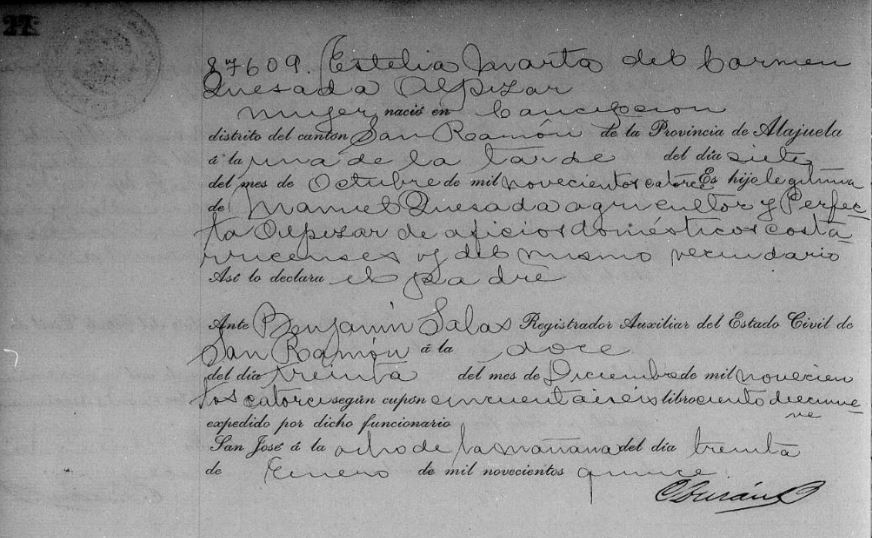 87609. Estelia Marta del Carmen
Quesada Alpizar
mujer nació en Concepcion
distrito del cantón San Ramón de la Provincia de Alajuela
á la una de la tarde del día siete
del mes de Octubre de mil novecientos catorce Es hijo legítima
de Manuel Quesada agricultor y Perfec-
ta Alpizar de oficios domésticos costa-
rricenses y del mismo vecindario
Así lo declara el padre
Ante Benjamín Salas Registrador Auxiliar del Estado Civil de
San Ramón á la doce
del día treinta del mes de Diciembre de mil novecien
tos catorce según cupón cincuentaiséis libro ciento diecinue-
ve
expedido por dicho funcionario
San José á la ocho de la mañana del día treinta
de Enero de mil novecientos quince